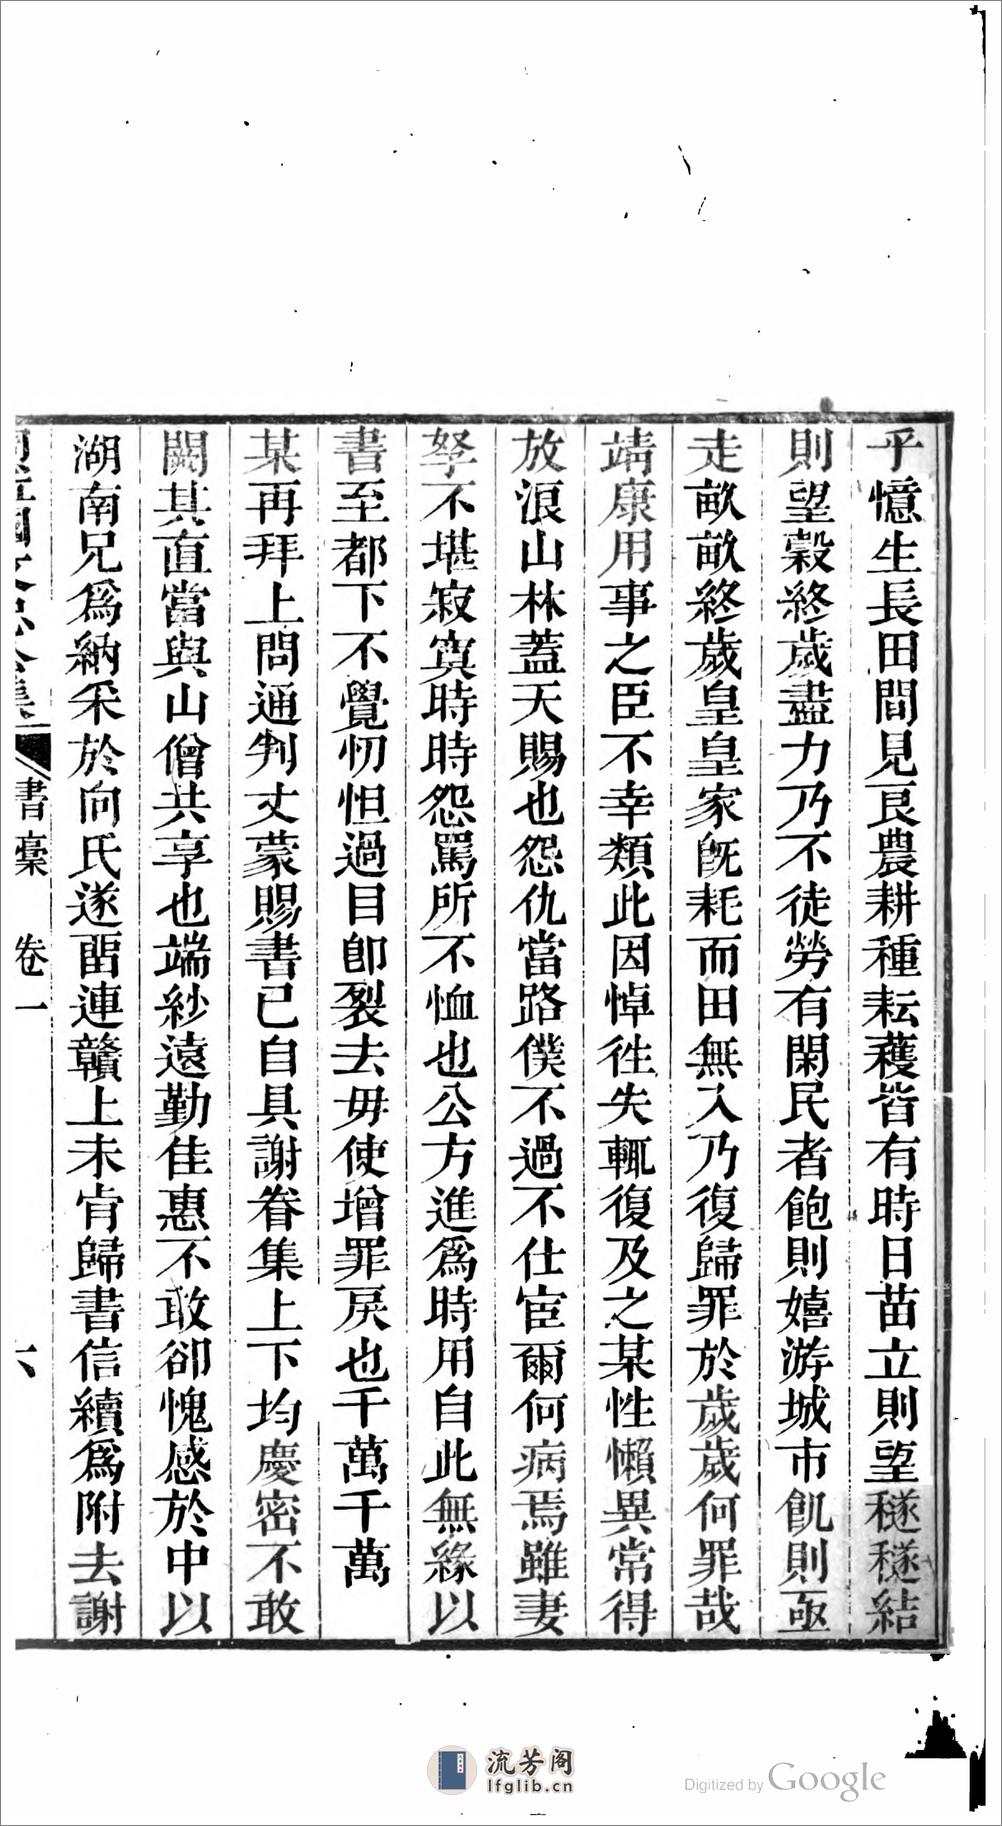 乎憶生長田間見良農耕種耘穫皆有時日苗立則望穟穟結
則望穀終歲盡力乃不徒勞有閑民者飽則嬉游城市飢則亟
走畝畝終歲皇皇家旣耗而田無入乃復歸罪於歲歲何罪哉
靖康用事之臣不幸類此因悼徃失輒復及之某性懶異常得
放浪山林蓋天賜也怨仇當路僕不過不仕宦爾何病焉雖妻
孥不堪寂寞時時怨罵所不恤也公方進爲時用自此無緣以
書至都下不覺忉怛過目卽裂去毋使增罪戾也千萬千萬
某再拜上問通判丈蒙賜書已自具謝眷集上下均慶密不敢
闕其直當與山僧共享也端紗遠勤佳惠不敢卻愧感於中以
湖南兄爲納采於向氏遂畱連贛上未肯歸書信續爲附去謝
書稾 卷一 六
流芳阁
lfglib.cn
Digitized by Google